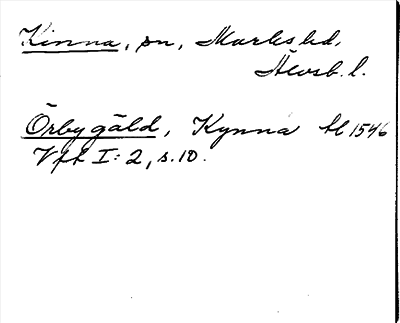 Kinna, sn, Marks hd,
Älvsb. l.
Örby gäld, Kynna tl 1546
Vft I: 2, s. 10.